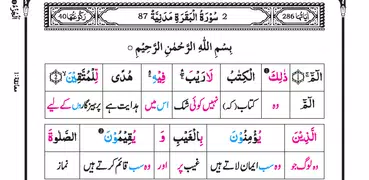 اٰيَاتُهَا 286
2 سُوْرَةُ الْبَقَرَةِ مَدَنِيَّةٌ 87
رُكُوْعَاتُهَا 40
بِسْمِ اللّٰهِ الرَّحْمٰنِ الرَّحِيْمِ
الٓمّٓ ذٰلِكَ الْكِتٰبُ لَارَيْبَ فِيْهِ هُدًى لِّلْمُتَّقِيْنَ
الٓمّٓ وہ کتاب (کہ) نہیں کوئی شک اس میں ہدایت ہے پرہیزگاروں کے لیے
الَّذِيْنَ يُؤْمِنُوْنَ بِالْغَيْبِ وَ يُقِيْمُوْنَ الصَّلٰوةَ
وہ لوگ جو وہ سب ایمان لاتے ہیں غیب پر اور وہ سب قائم کرتے ہیں نماز